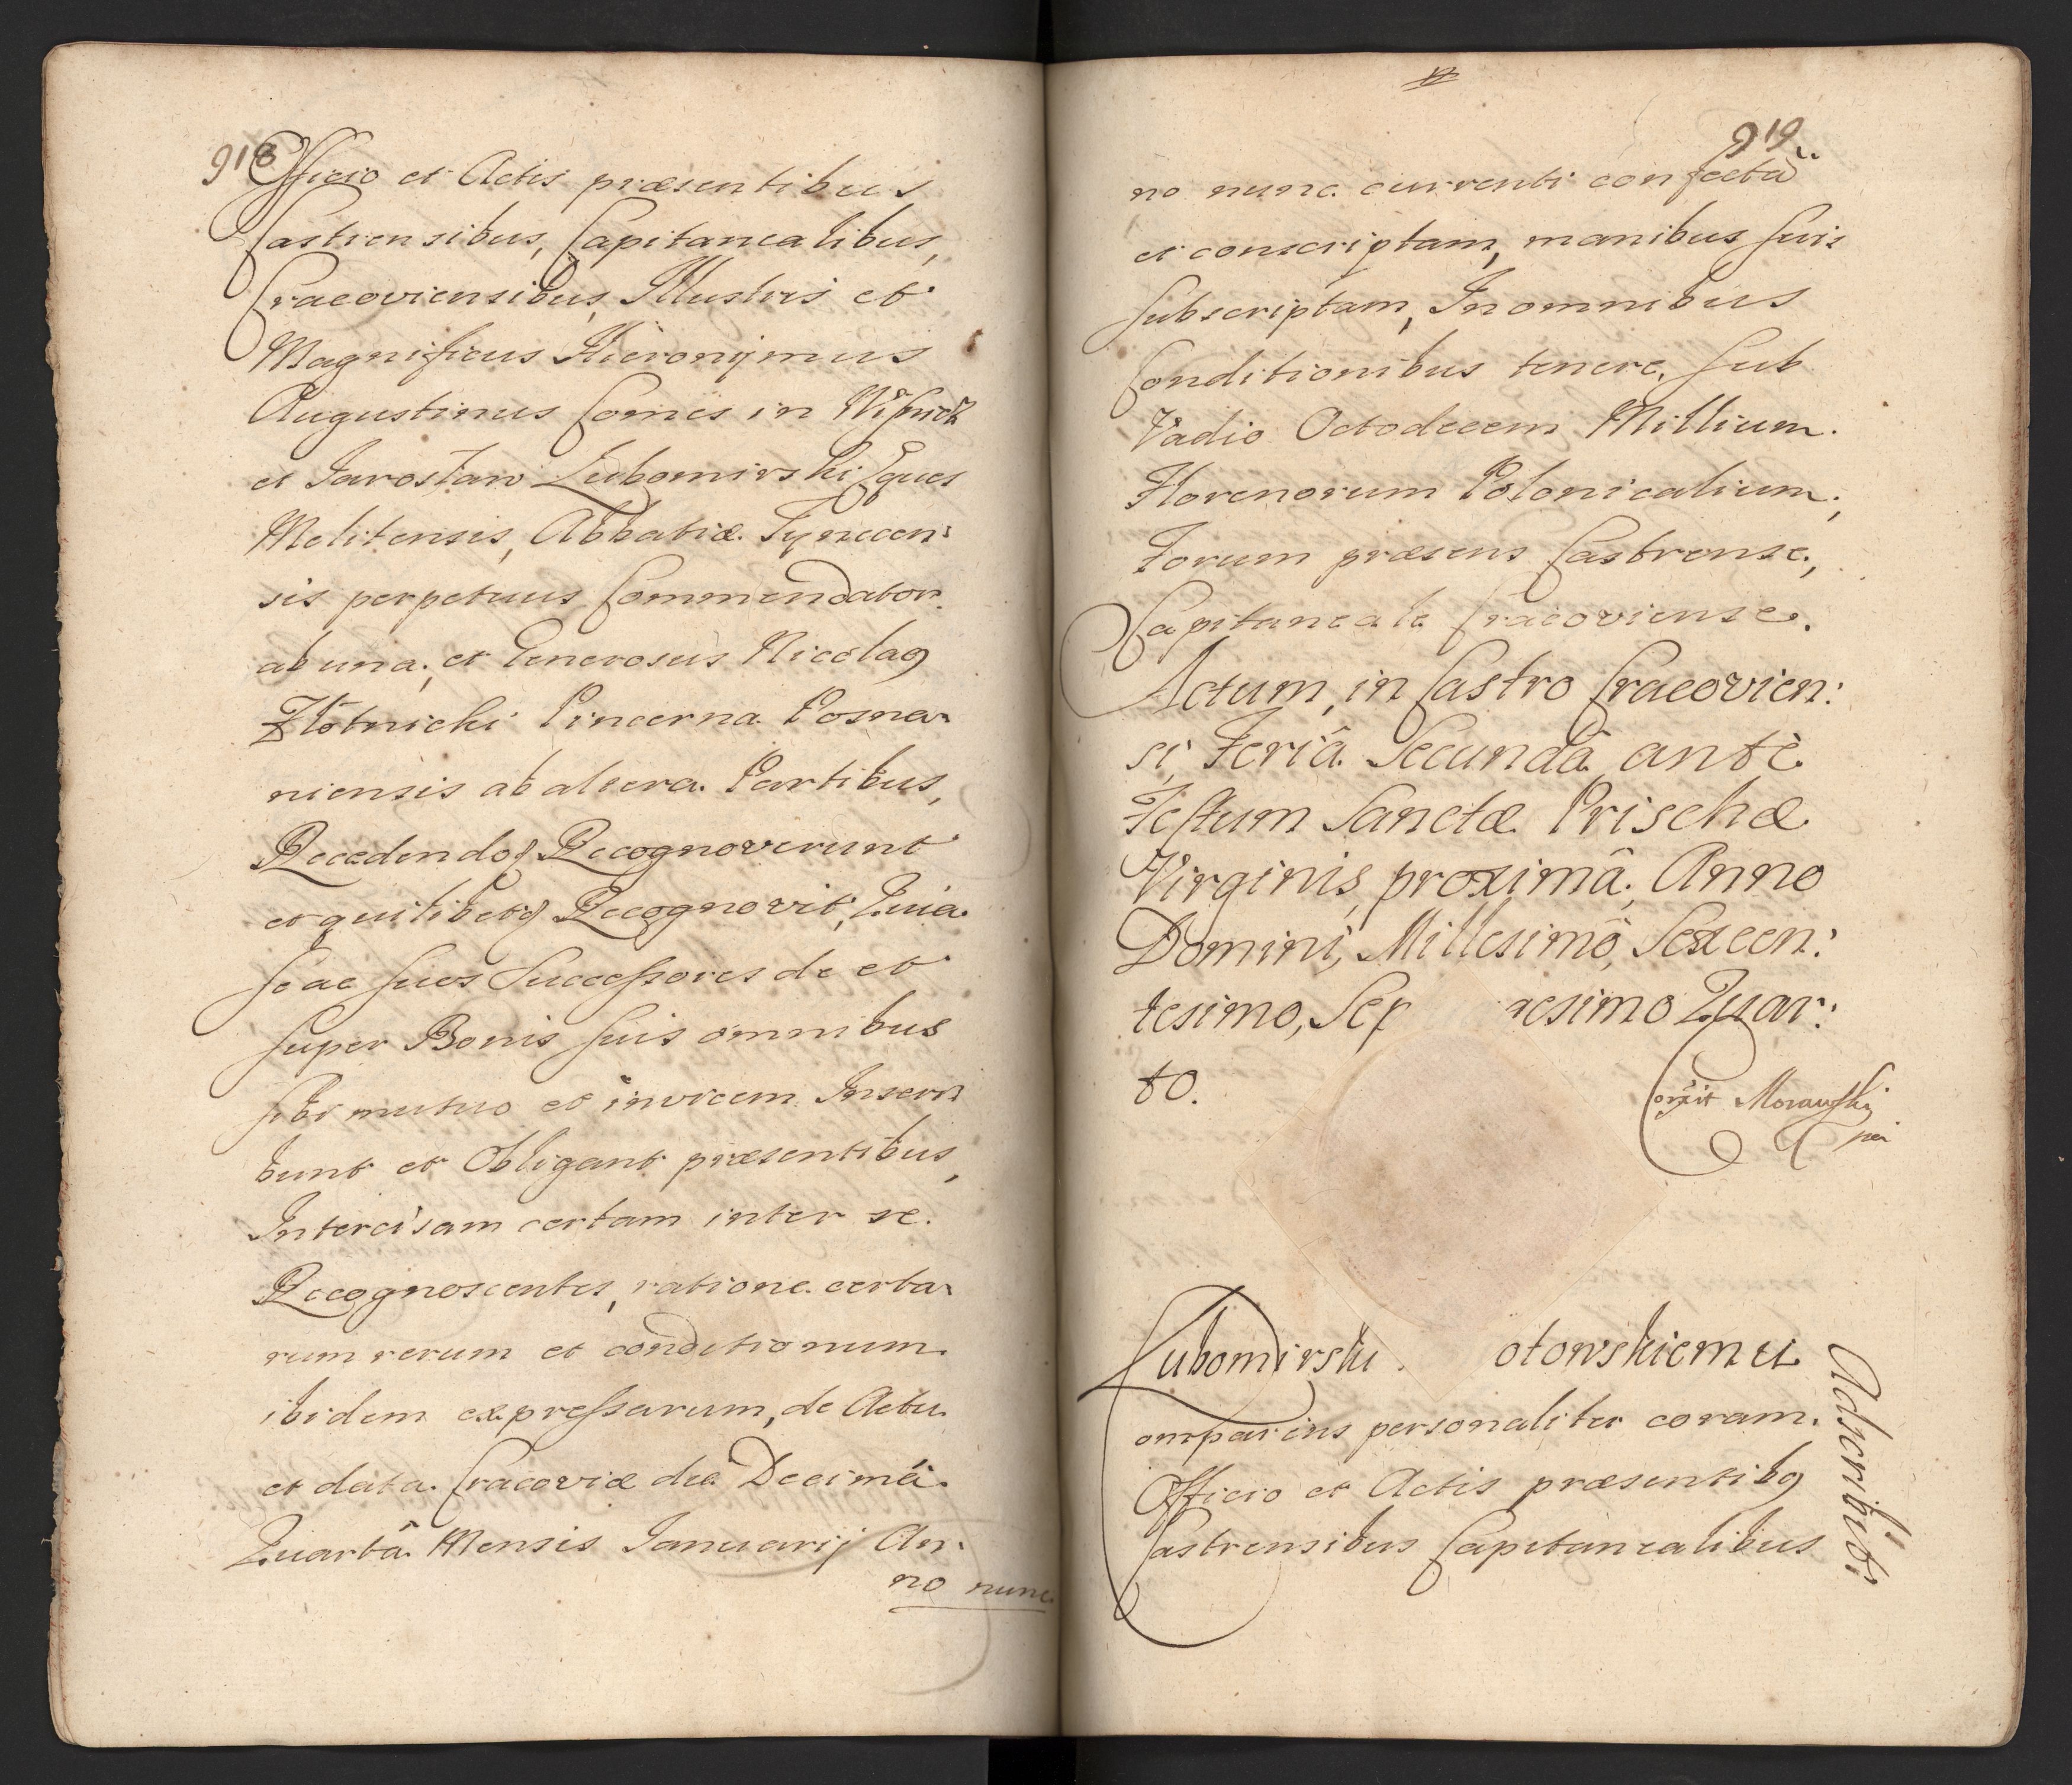 918
Officio et Actis præsentibus
Castrensibus, Capitanealibus,
Cracoviensibus, Illustris et
Magnificus Hieronÿmus
Augustinus Comes in Wiſnicz
et Jarosław Lubomirski Eques
Melitensis, Abbatiæ Tynecen:
sis perpetuus Commendator
ab una, et Generosus Nicolaꝯ
Złotnicki Pincerna Posna:
niensis ab altera Partibus,
Recedendoqꝫ Recognoverunt
et quilibetqꝫ Recognovit, Quia
ſe ac ſuos Succeſsores de et
ſuper Bonis ſuis omnibus
ſibi mutuo et invicem Inscri:
bunt et Obligant præsentibus,
Intercisam certam inter se
Recognoscentes, ratione certa:
rum rerum et conditionum
ibidem expreſsarum, de Actu
et data Cracoviæ die Decimâ
Quartâ Mensis Januarij An:
no nunc
919
no nunc currenti confectã
et conscriptam, manibus ſuis
ſubscriptam, In omnibus
Conditionibus tenere, ſub
Vadio Octodecem Millium
Florenorum Polonicalium,
Forum præsens Castrense,
Capitaneale Cracoviense.
Actum, in Castro Cracovien:
si, Feriâ Secundâ, ante
Feſtum Sanctæ Prischæ
Virginis, proximâ, Anno
Domini, Millesimô, Sexcen:
tesimo, Sep     gesimo Quar:
to.
Corr̃it Morawſki
Lubomirski     otowskiemu
omparens personaliter coram
Officio et Actis præsentibꝯ
Castrensibus Capitanealibus
Adscribit: